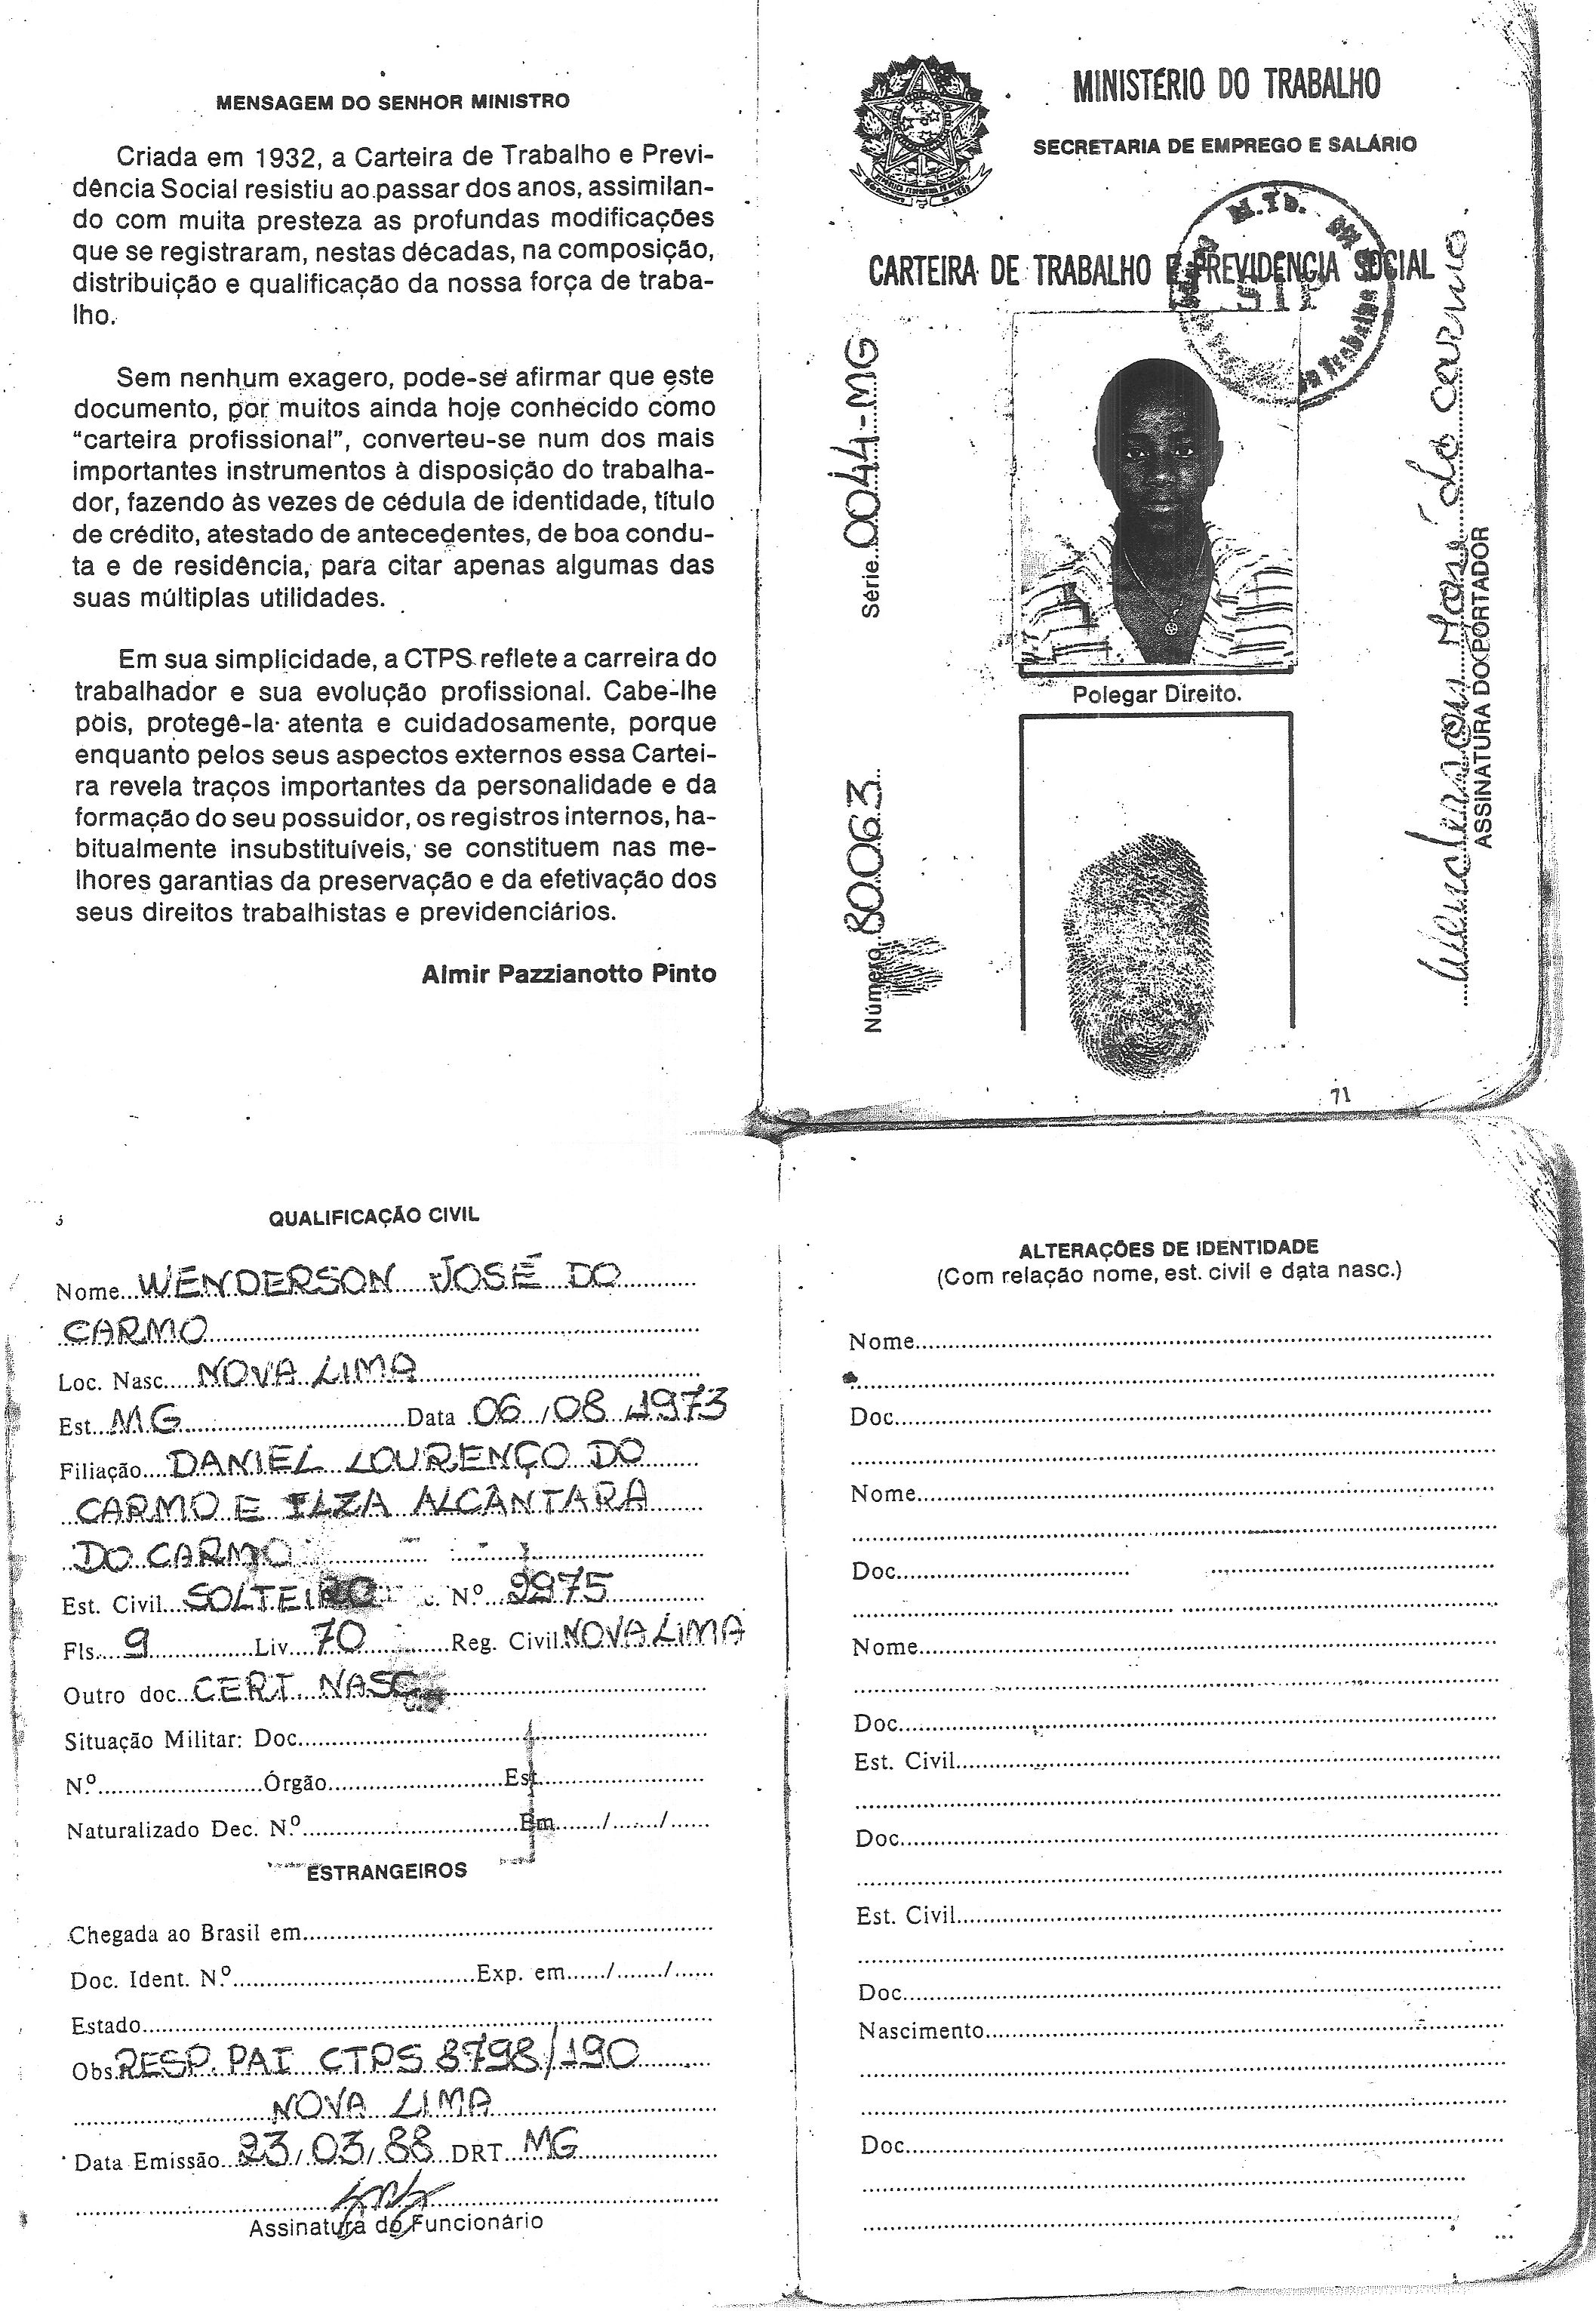 MENSAGEM DO SENHOR MINISTRO
Criada em 1932, a Carteira de Trabalho e Previ-
dência Social resistiu ao passar dos anos, assimilan-
do com muita presteza as profundas modificações
que se registraram, nestas décadas, na composição,
distribuição e qualificação da nossa força de traba-
lho.
Sem nenhum exagero, pode-se afirmar que este
documento, por muitos ainda hoje conhecido como
“carteira profissional”, converteu-se num dos mais
importantes instrumentos à disposição do trabalha-
dor, fazendo às vezes de cédula de identidade, título
de crédito, atestado de antecedentes, de boa condu-
ta e de residência, para citar apenas algumas das
suas múltiplas utilidades.
Em sua simplicidade, a CTPS reflete a carreira do
trabalhador e sua evolução profissional. Cabe-lhe
pois, protegê-la atenta e cuidadosamente, porque
enquanto pelos seus aspectos externos essa Cartei-
ra revela traços importantes da personalidade e da
formação do seu possuidor, os registros internos, ha-
bitualmente insubstituíveis, se constituem nas me-
lhores garantias da preservação e da efetivação dos
seus direitos trabalhistas e previdenciários.
Almir Pazzianotto Pinto
MINISTÉRIO DO TRABALHO
SECRETARIA DE EMPREGO E SALÁRIO
M.Tb.
CARTEIRA DE TRABALHO E PREVIDENCIA SOCIAL
SIP
Trabalho
Número 80063 Série 0044-MG
Polegar Direito.
Wenderson José do Carmo
ASSINATURA DO PORTADOR
71
QUALIFICAÇÃO CIVIL
Nome WENDERSON JOSÉ DO
CARMO
Loc. Nasc. NOVA LIMA
Est. MG Data 06/08/1973
Filiação DANIEL LOURENÇO DO
CARMO E ILZA ALCÂNTARA
DO CARMO
Est. Civil SOLTEIRO N.º 2975
Fls. 9 Liv. 70 Reg. Civil NOVA LIMA
Outro doc. CERT. NASC.
Situação Militar: Doc.
N.º Órgão Est.
Naturalizado Dec. N.º Em / /
ESTRANGEIROS
Chegada ao Brasil em
Doc. Ident. N.º Exp. em / /
Estado
Obs. RESP. PAI CTPS 8798/190
NOVA LIMA
Data Emissão 23/03/88 DRT MG
Assinatura do Funcionário
ALTERAÇÕES DE IDENTIDADE
(Com relação nome, est. civil e data nasc.)
Nome
Doc.
Nome
Doc.
Nome
Doc.
Est. Civil
Doc.
Est. Civil
Doc.
Nascimento
Doc.